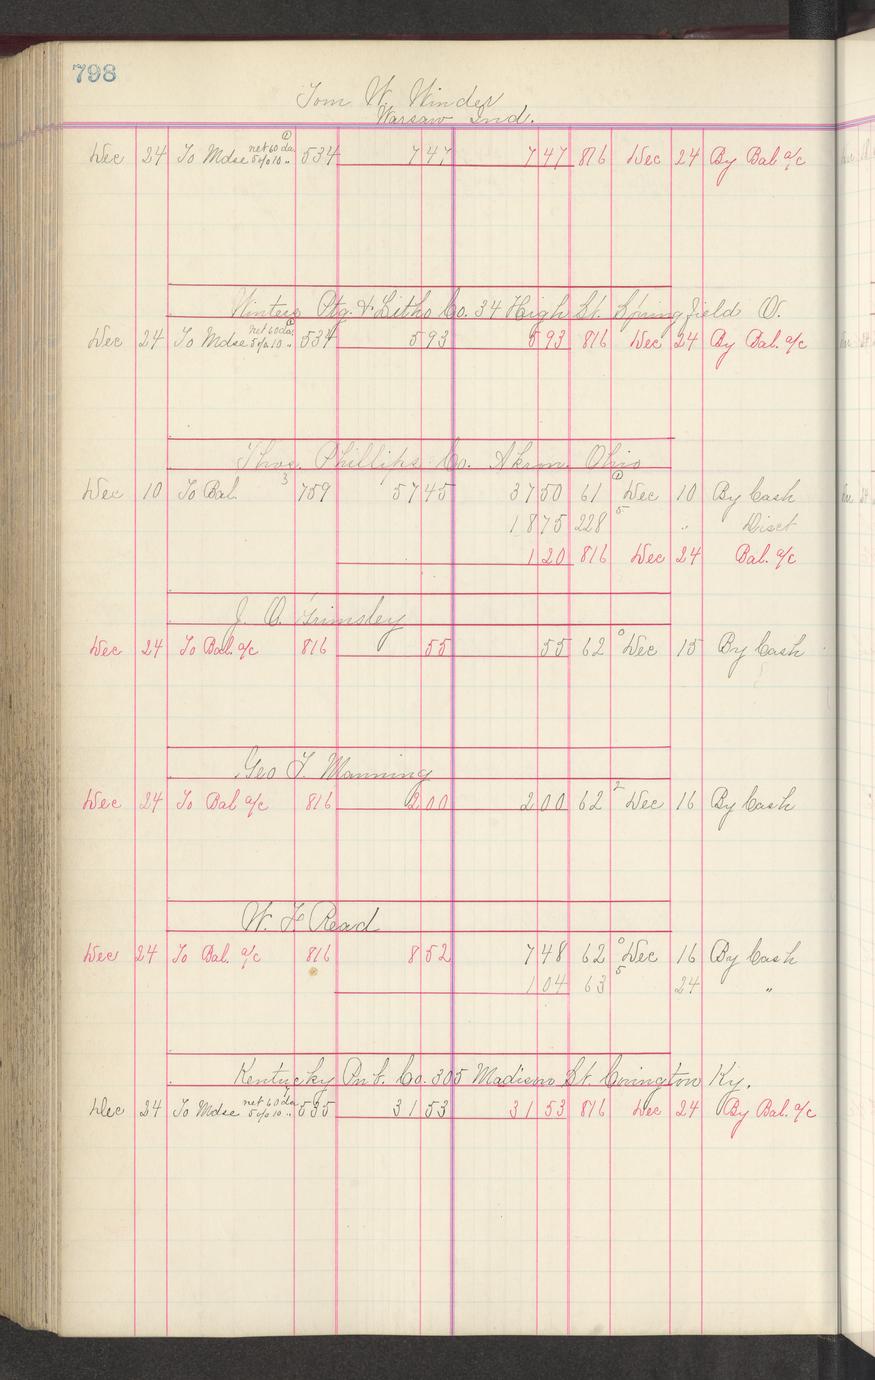 798
Tom W. Winder
Warsaw Ind.
Dec 24 To Mdse net 60 da 5% 10 " 534 7 47 7 47 816 Dec 24 By Bal a/c
Winters Ptg. & Litho Co. 34 High St. Springfield O.
Dec 24 To Mdse net 60 da 5% 10 " 534 5 93 5 93 816 Dec 24 By Bal. a/c
Thos. Phillips Co. Akron Ohio
Dec 10 To Bal. 3 759 57 45 37 50 61 1 Dec 10 By Cash
18 75 228 5 " Disct
1 20 816 Dec 24 Bal. a/c
J. O. Grimsley
Dec 24 To Bal. a/c 816 55 55 62 0 Dec 15 By Cash
Geo T. Manning
Dec 24 To Bal a/c 816 2 00 2 00 62 2 Dec 16 By Cash
W. F. Read
Dec 24 To Bal. a/c 816 8 52 7 48 62 0 Dec 16 By Cash
1 04 63 5 24 "
Kentucky Pnt. Co. 305 Madison St. Covington Ky.
Dec 24 To Mdse net 60 da 5% 10 " 535 31 53 31 53 816 Dec 24 By Bal. a/c